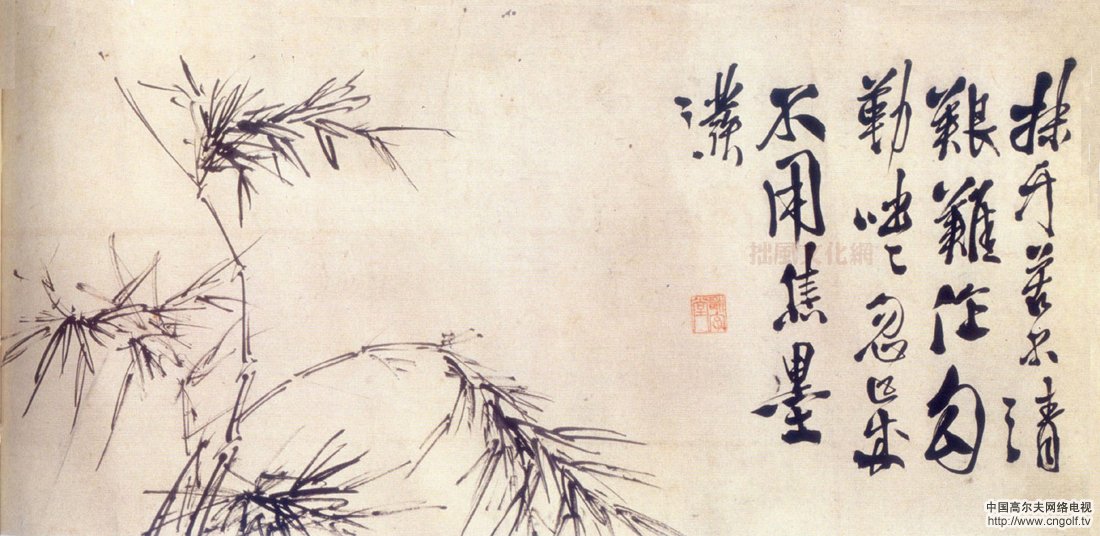 抹 苦不清
艱難作勾
勒咄〻忽已成
不用焦墨
拙風文化網
中国高尔夫网络电视
http://www.cngolf.tv